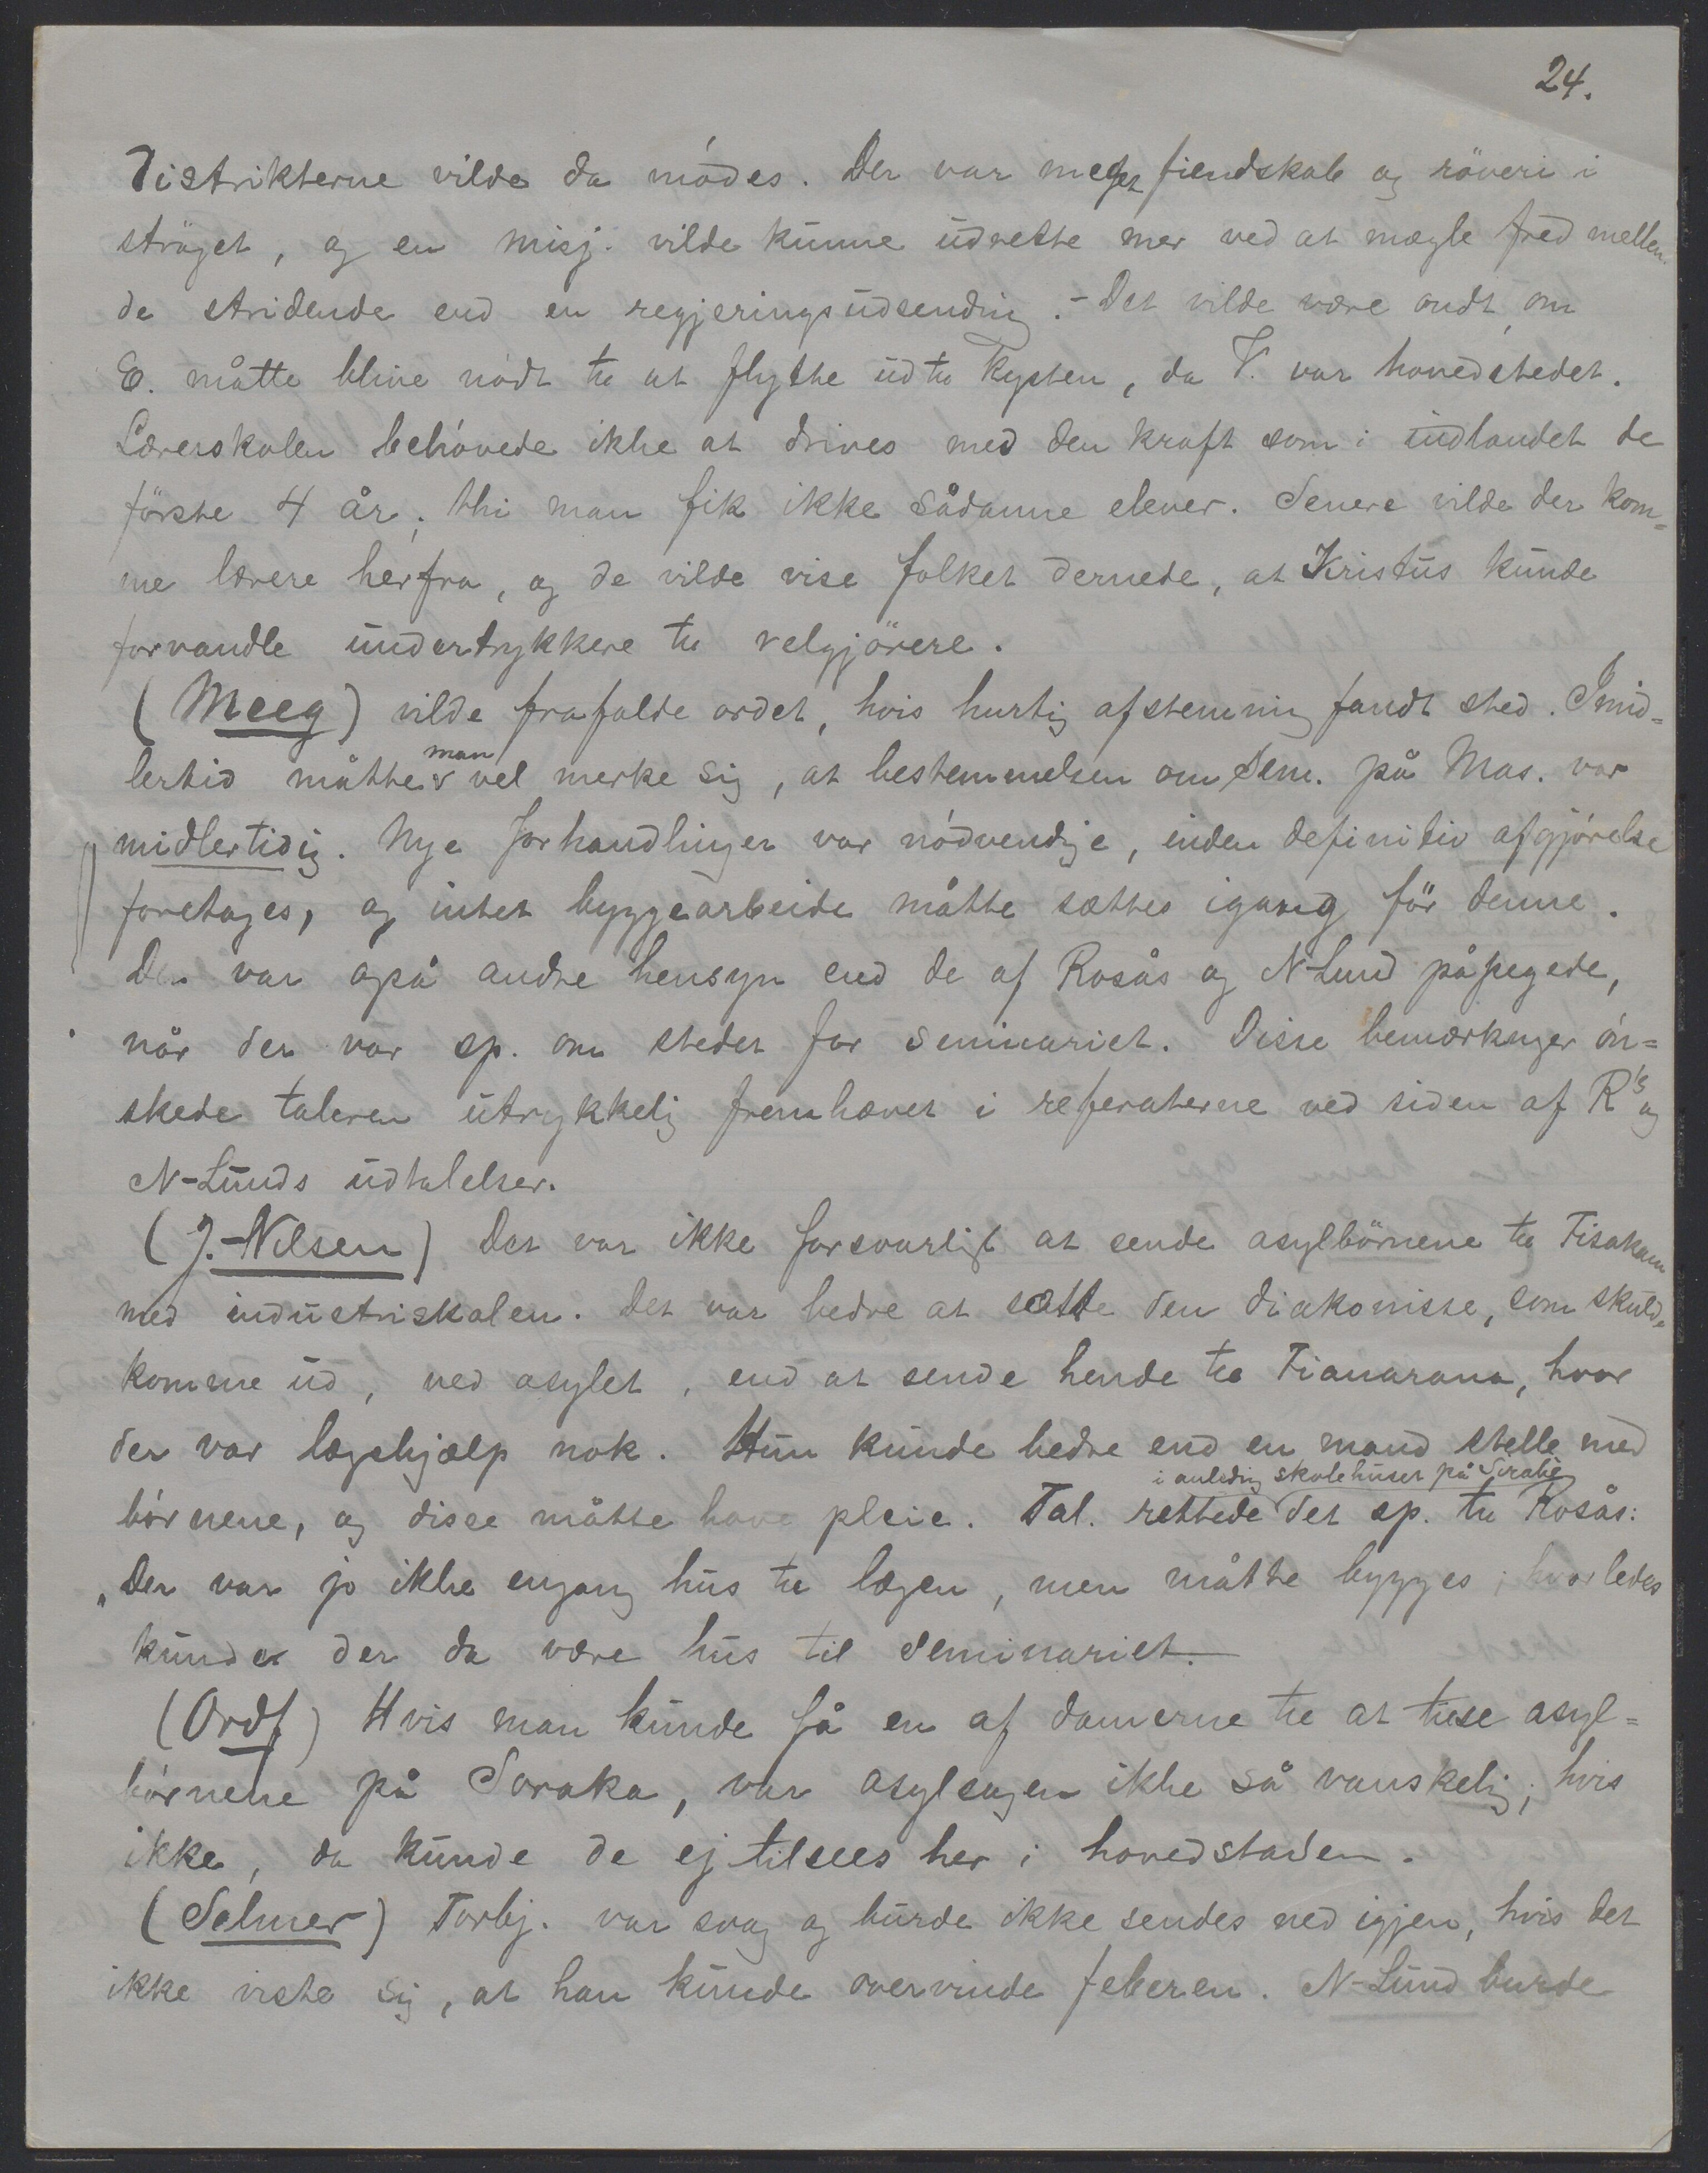 24.
Distrikterne vilde da mödes. Der var meget fiendskab og röveri i
ströget, og en misj. vilde kunne udrette mer ved at mægle fred mellem
de stridende end en regjeringsudsending. - Det vilde være ondt, om
E. måtte blive nödt til at flytte ud til Kysten, da V. var hovedstedet.
Lærerskolen behövede ikke at drives med den kraft som i indlandet de
förste 4 år; thi man fik ikke sådanne elever. Senere vilde der kom=
me lærere herfra, og de vilde vise folket dernede, at Kristus kunde
forvandle undertrykkere til velgjörere.
(Meeg) vilde frafalde ordet, hvis hurtig afstemning fandt sted. Imid=
lertid måtte man vel merke sig, at bestemmelsen om Sem. på Mas. var
midlertidig. Nye forhandlinger var nödvendige, inden definitiv afgjörelse
foretages, og intet byggearbeide måtte sættes igang för denne.
Der var også andre hensyn end de af Rosås og N-Lund påpegede,
når der var sp. om stedet for seminariet. Disse bemærkninger ön=
skede taleren utrykkelig fremhævet i referaterne ved siden af R's og
N-Lunds udtalelser.
(J. Nilsen) Det var ikke forsvarligt at sende asylbörnene til Fisakam
med industriskolen. Det var bedre at sætte den diakonisse, som skulde
komme ud, ved asylet, end at sende hende til Fianarana, hvor
der var lægehjælp nok. Hun kunde bedre end en mand stelle med
börnene, og disse måtte have pleie. Tal. rettede i anledng skolehuset på Sirabe det sp. til Rosås:
"Der var jo ikke engang hus til lægen, men måtte bygges; hvorledes
kunde der da være hus til seminariet.
(Ordf) Hvis man kunde få en af damerne til at tilse asyl=
börnene på Soraka, var asylsagen ikke så vanskelig; hvis
ikke, da kunde de ej tilsees her i hovedstaden.
(Selmer) Torbj. var svag og burde ikke sendes ned igjen, hvis det
ikke viste sig, at han kunde overvinde feberen. N-Lund burde